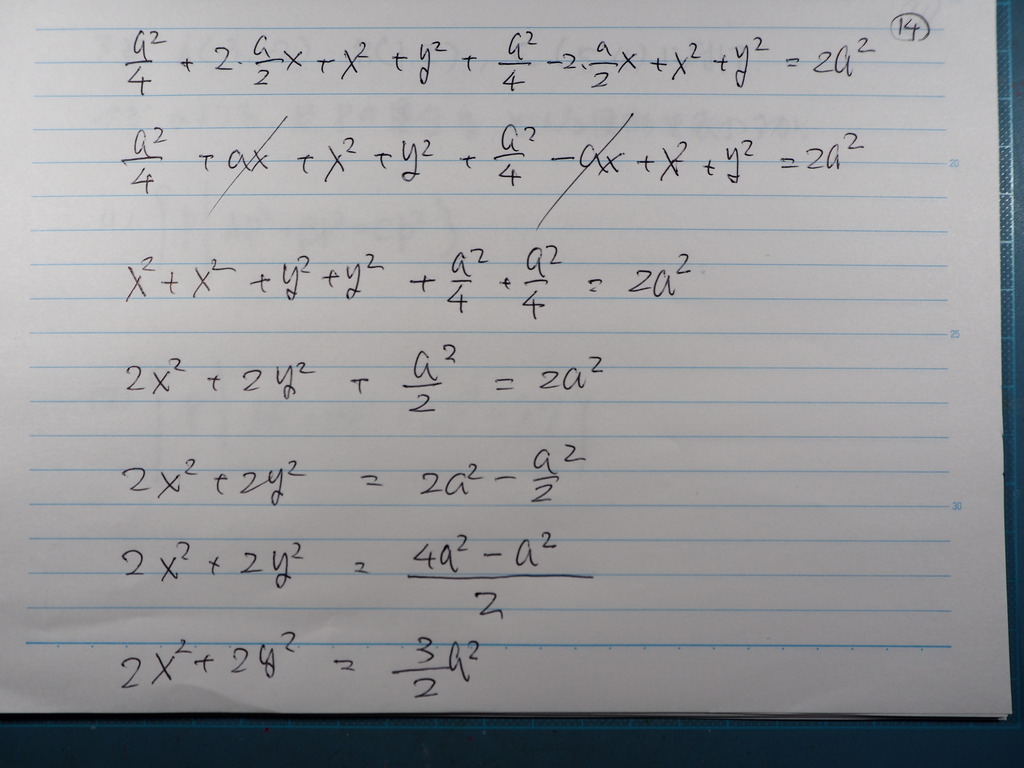 ⑭
a²/4 + 2·a/2x + x² + y² + a²/4 - 2·a/2x + x² + y² = 2a²
a²/4 + ax + x² + y² + a²/4 - ax + x² + y² = 2a²
20
x² + x² + y² + y² + a²/4 + a²/4 = 2a²
25
2x² + 2y² + a²/2 = 2a²
2x² + 2y² = 2a² - a²/2
30
2x² + 2y² = (4a² - a²)/2
2x² + 2y² = 3/2a²